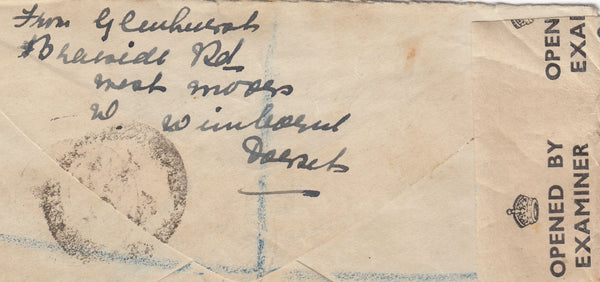 From Glenhurst
Braeside Rd
West Moors
W. Wimborne
Dorset
OPENED BY
EXAMINER
OPEN
EXAI